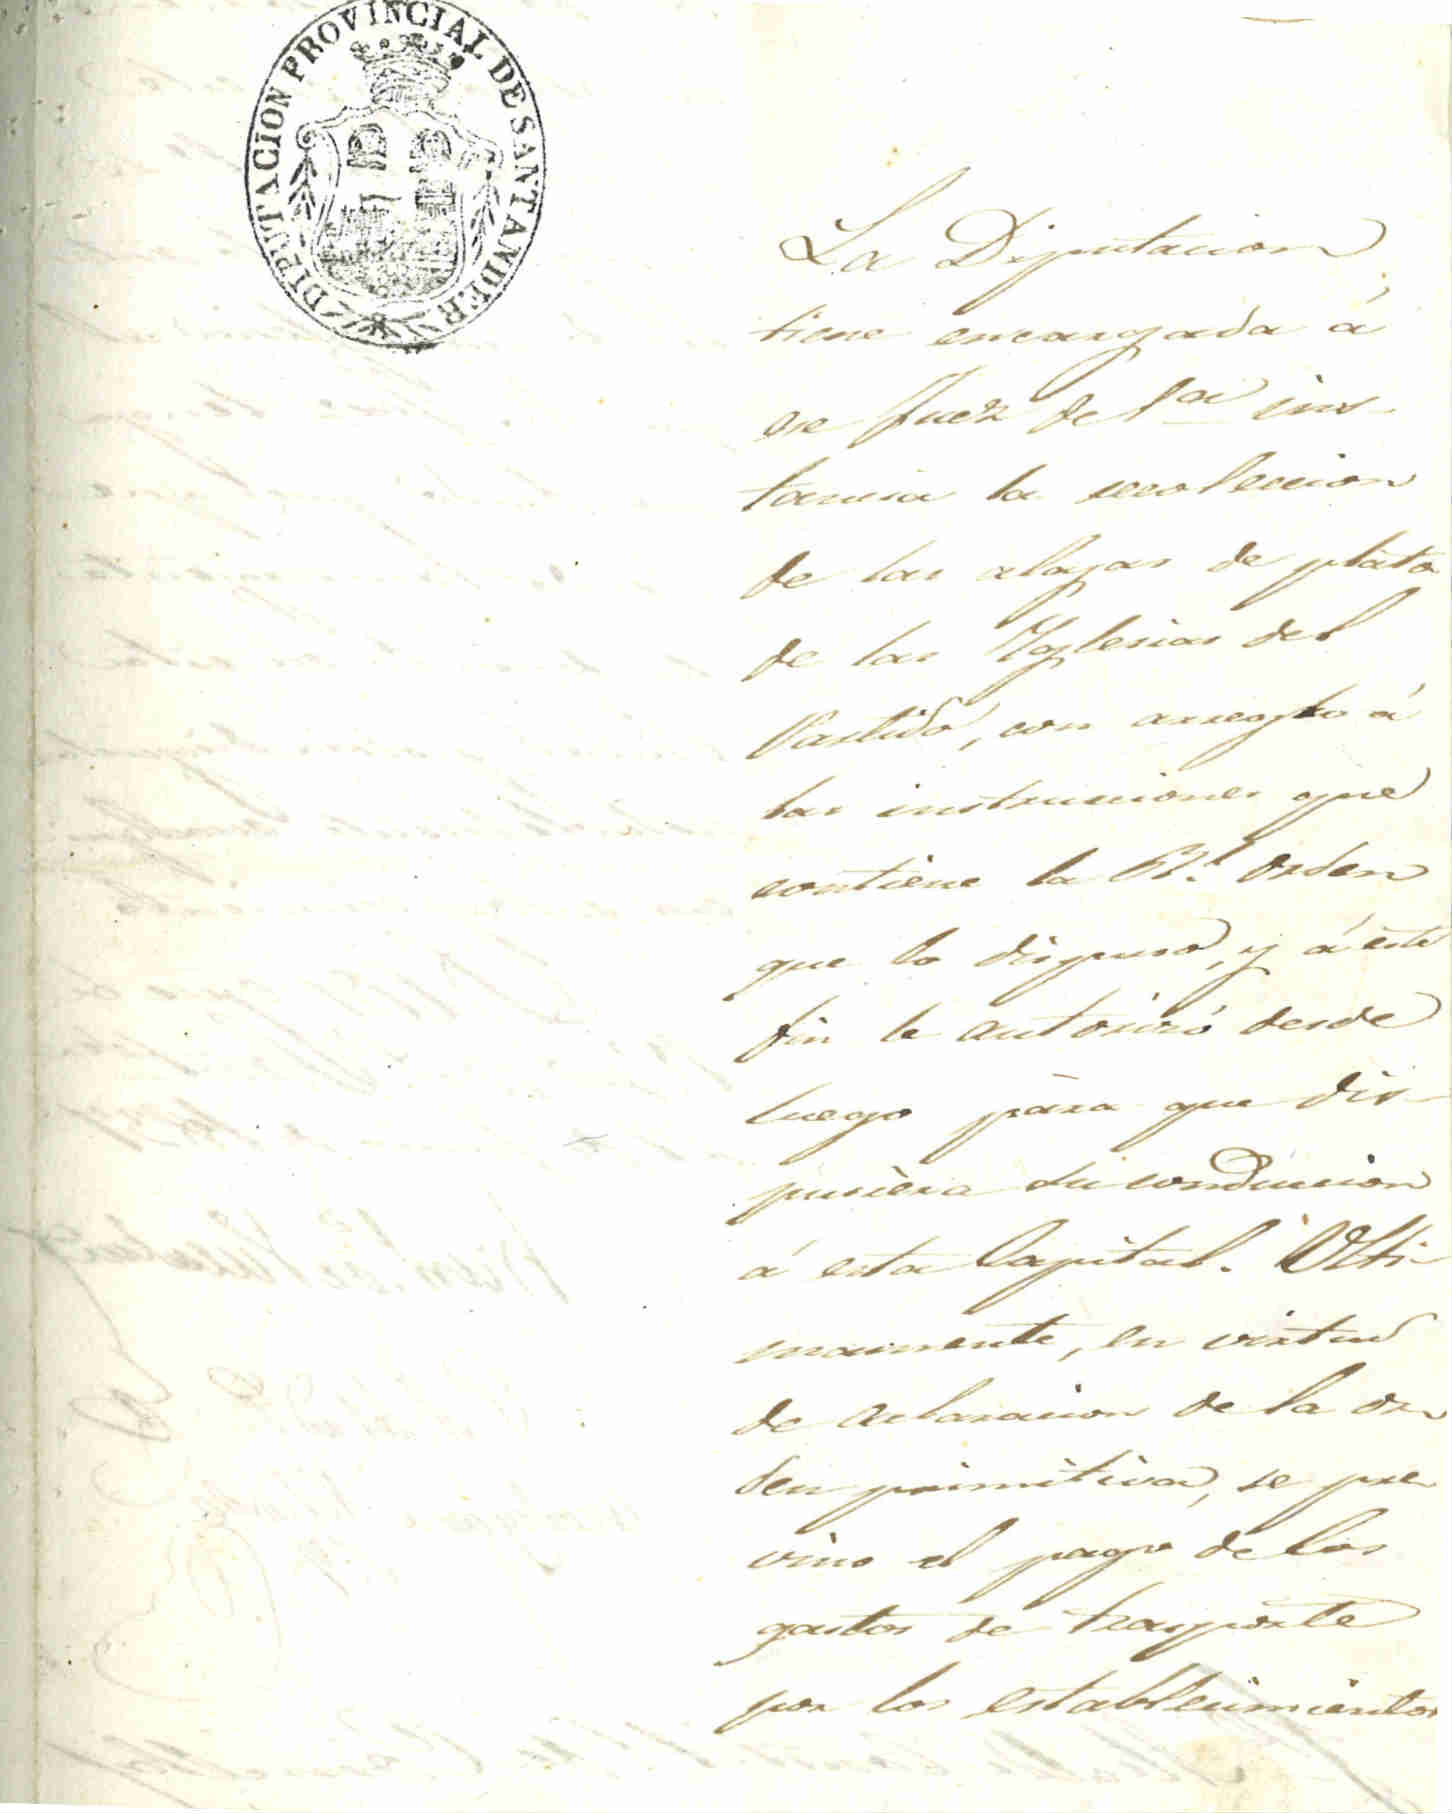 DIPUTACION PROVINCIAL DE SANTANDER
La Diputacion
tiene encargada á
ese Juez de 1.ª ins-
tancia la recoleccion
de las alajas de plata
de las Yglesias del
Partido, con arreglo á
las instrucciones que
contiene la Rl. orden
que lo dispuso, y á este
fin le autorizó desde
luego para que dis-
pusiera su conduccion
á esta Capital. Ulti-
mamente, en virtud
de aclaracion de la or-
den primitiva, se pre
vino el pago de los
gastos de trasporte
por los establecimientos